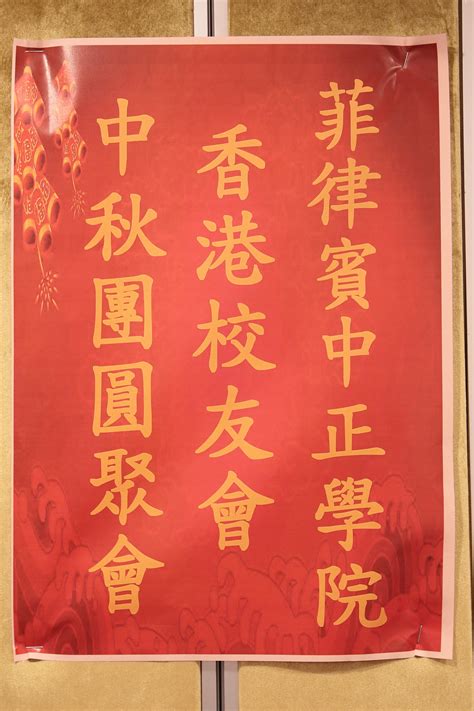 菲律賓中正學院
香港校友會
中秋團圓聚會